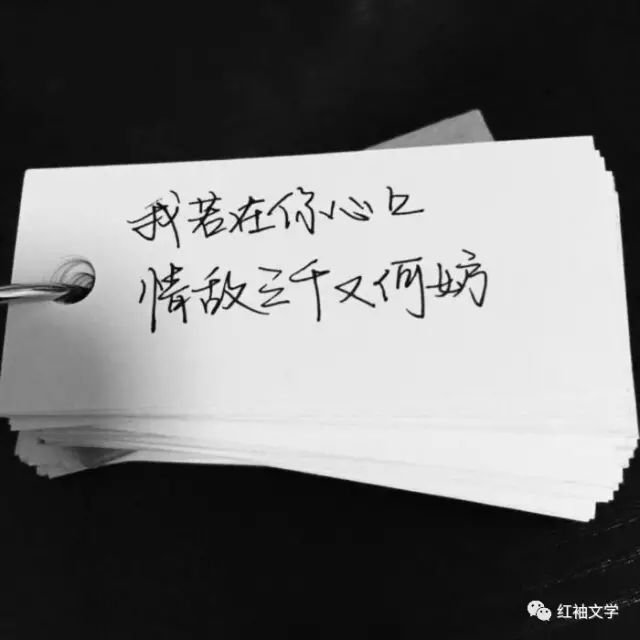 我若在你心口
情敌三千又何妨
红袖文学